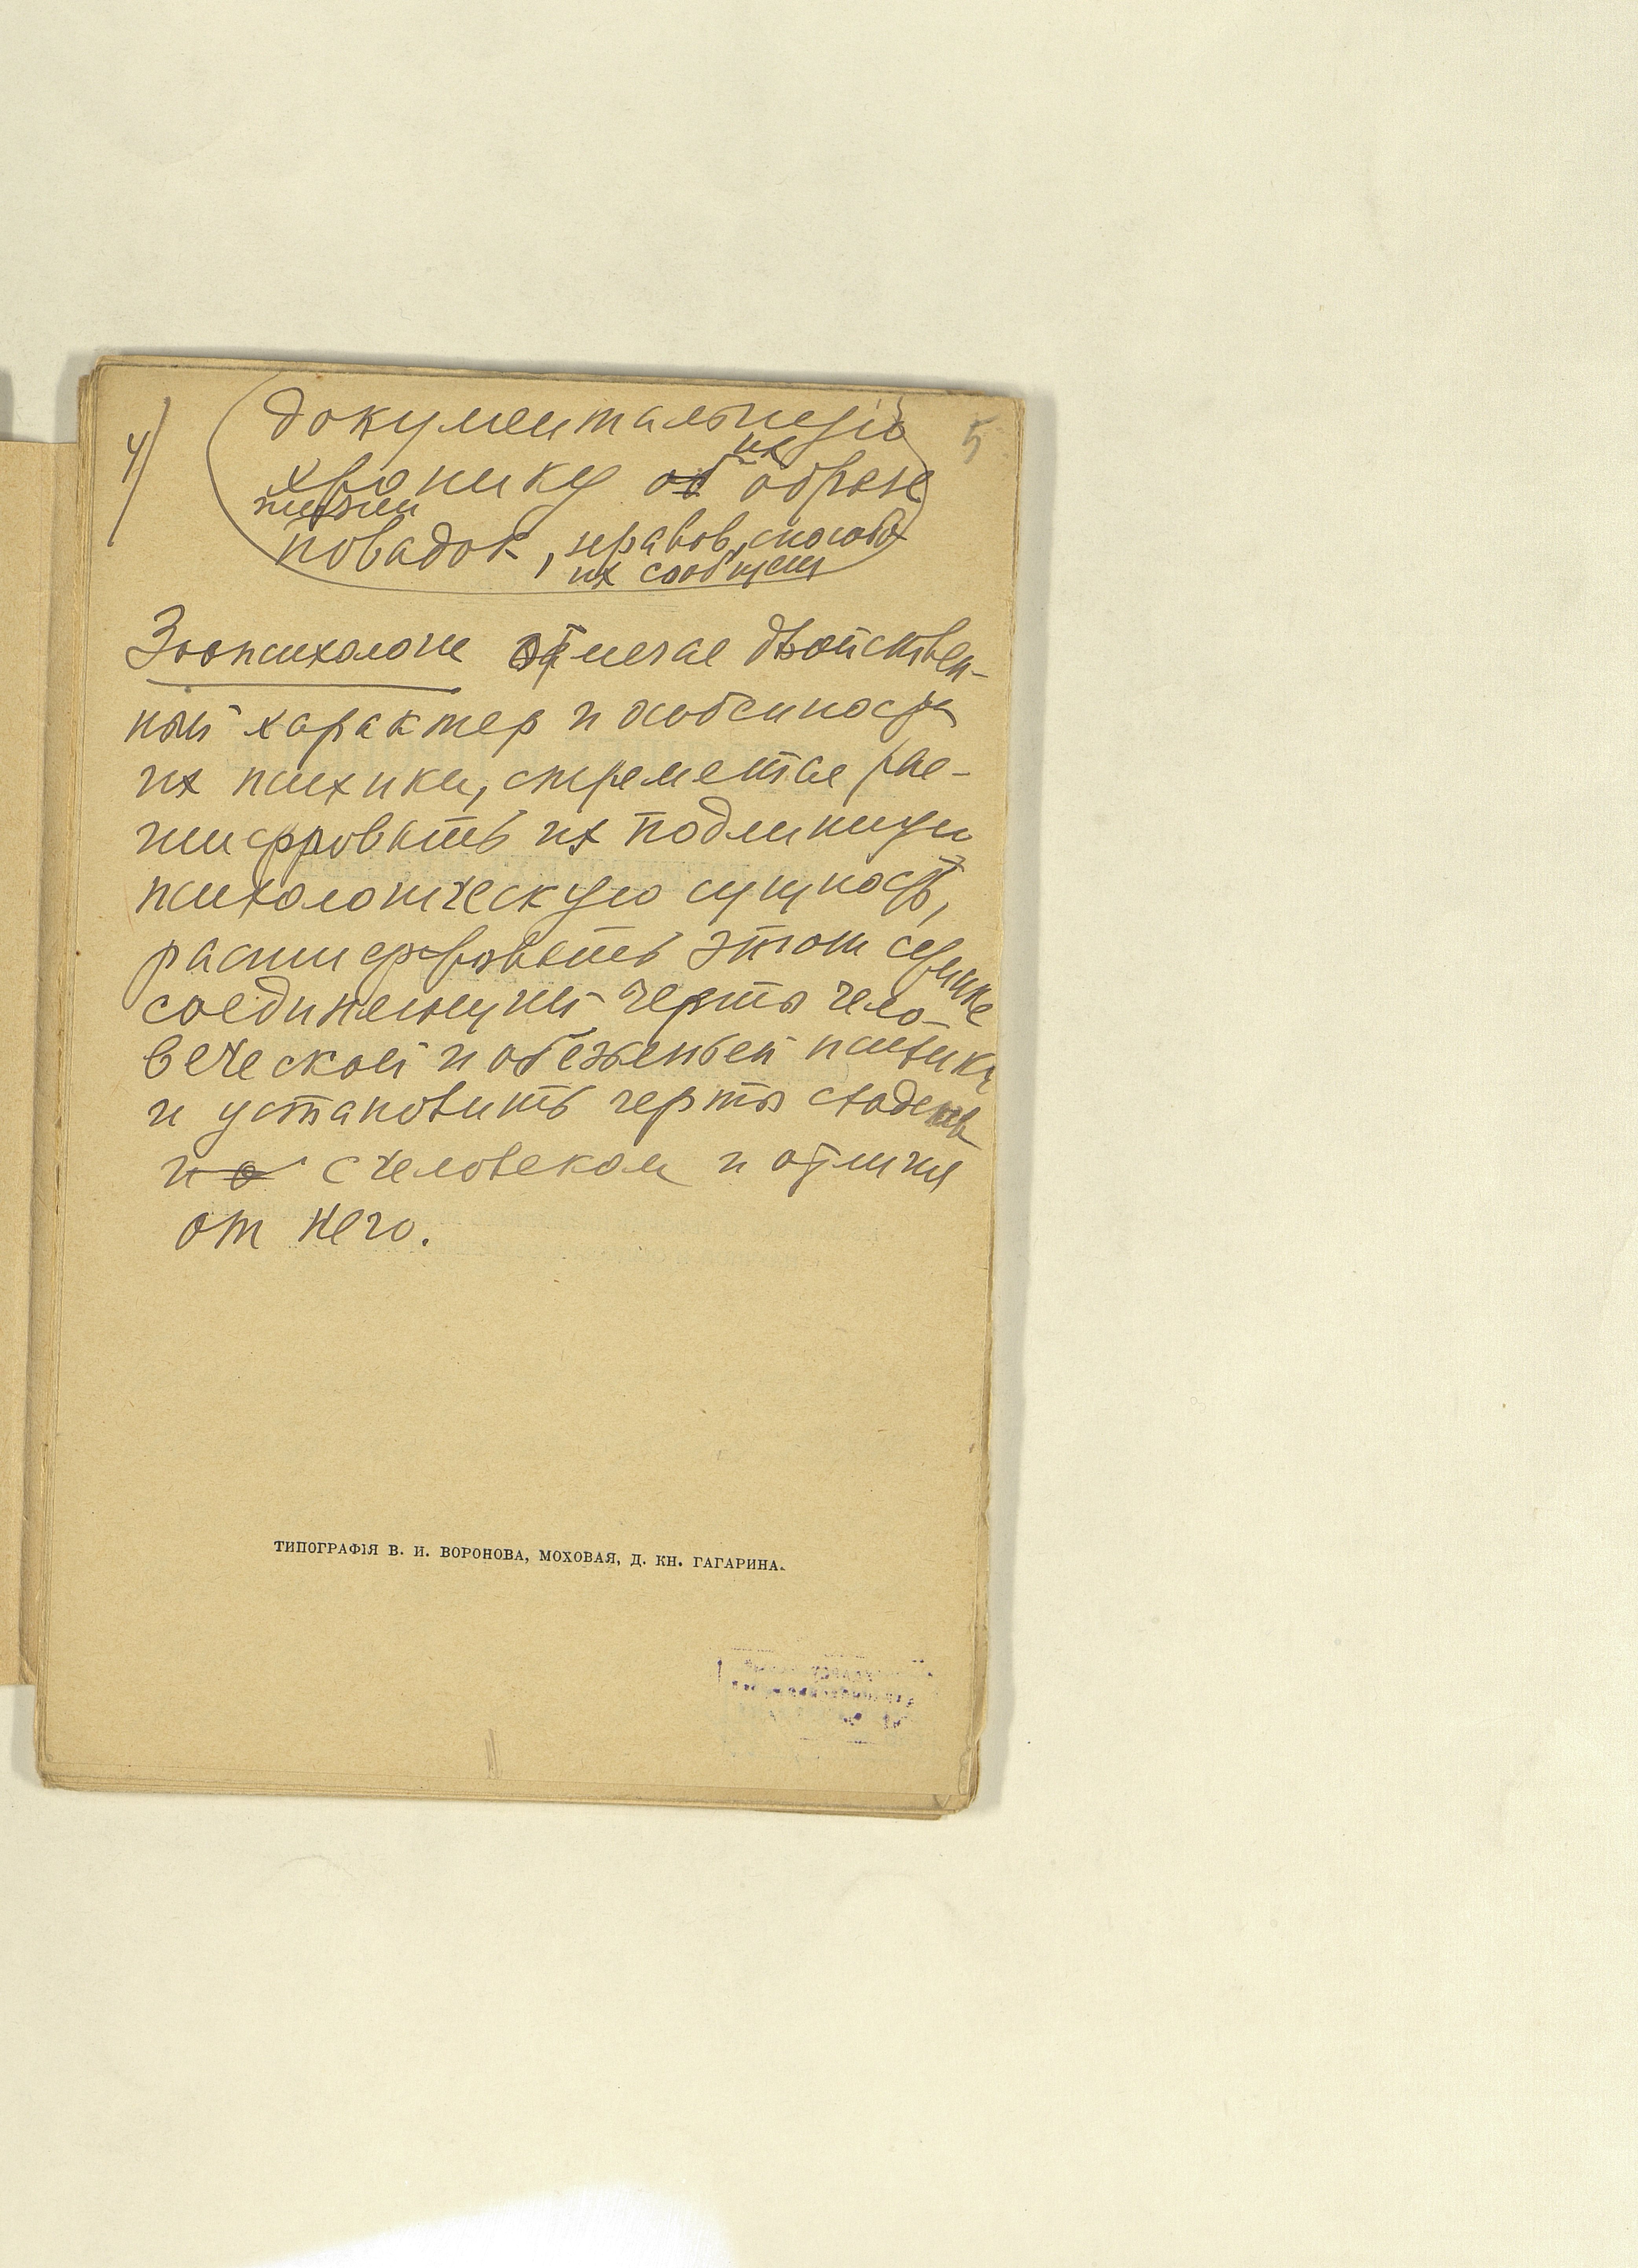 4)
5
документальную
хронику об их образе
жизни
повадок, нравов, способов
их сообщения
Зоопсихологи отмечае двойствен-
ный характер и особенности
их психики, стремятся рас-
шифровать их подлинную
психологическую сущность,
расшифровать этом
соединенных черты чело-
веческой и обезьяньей психики
и установить черты сходства
и о с человеком и отличия
от него.
ТИПОГРАФІЯ В. И. ВОРОНОВА, МОХОВАЯ, Д. КН. ГАГАРИНА.